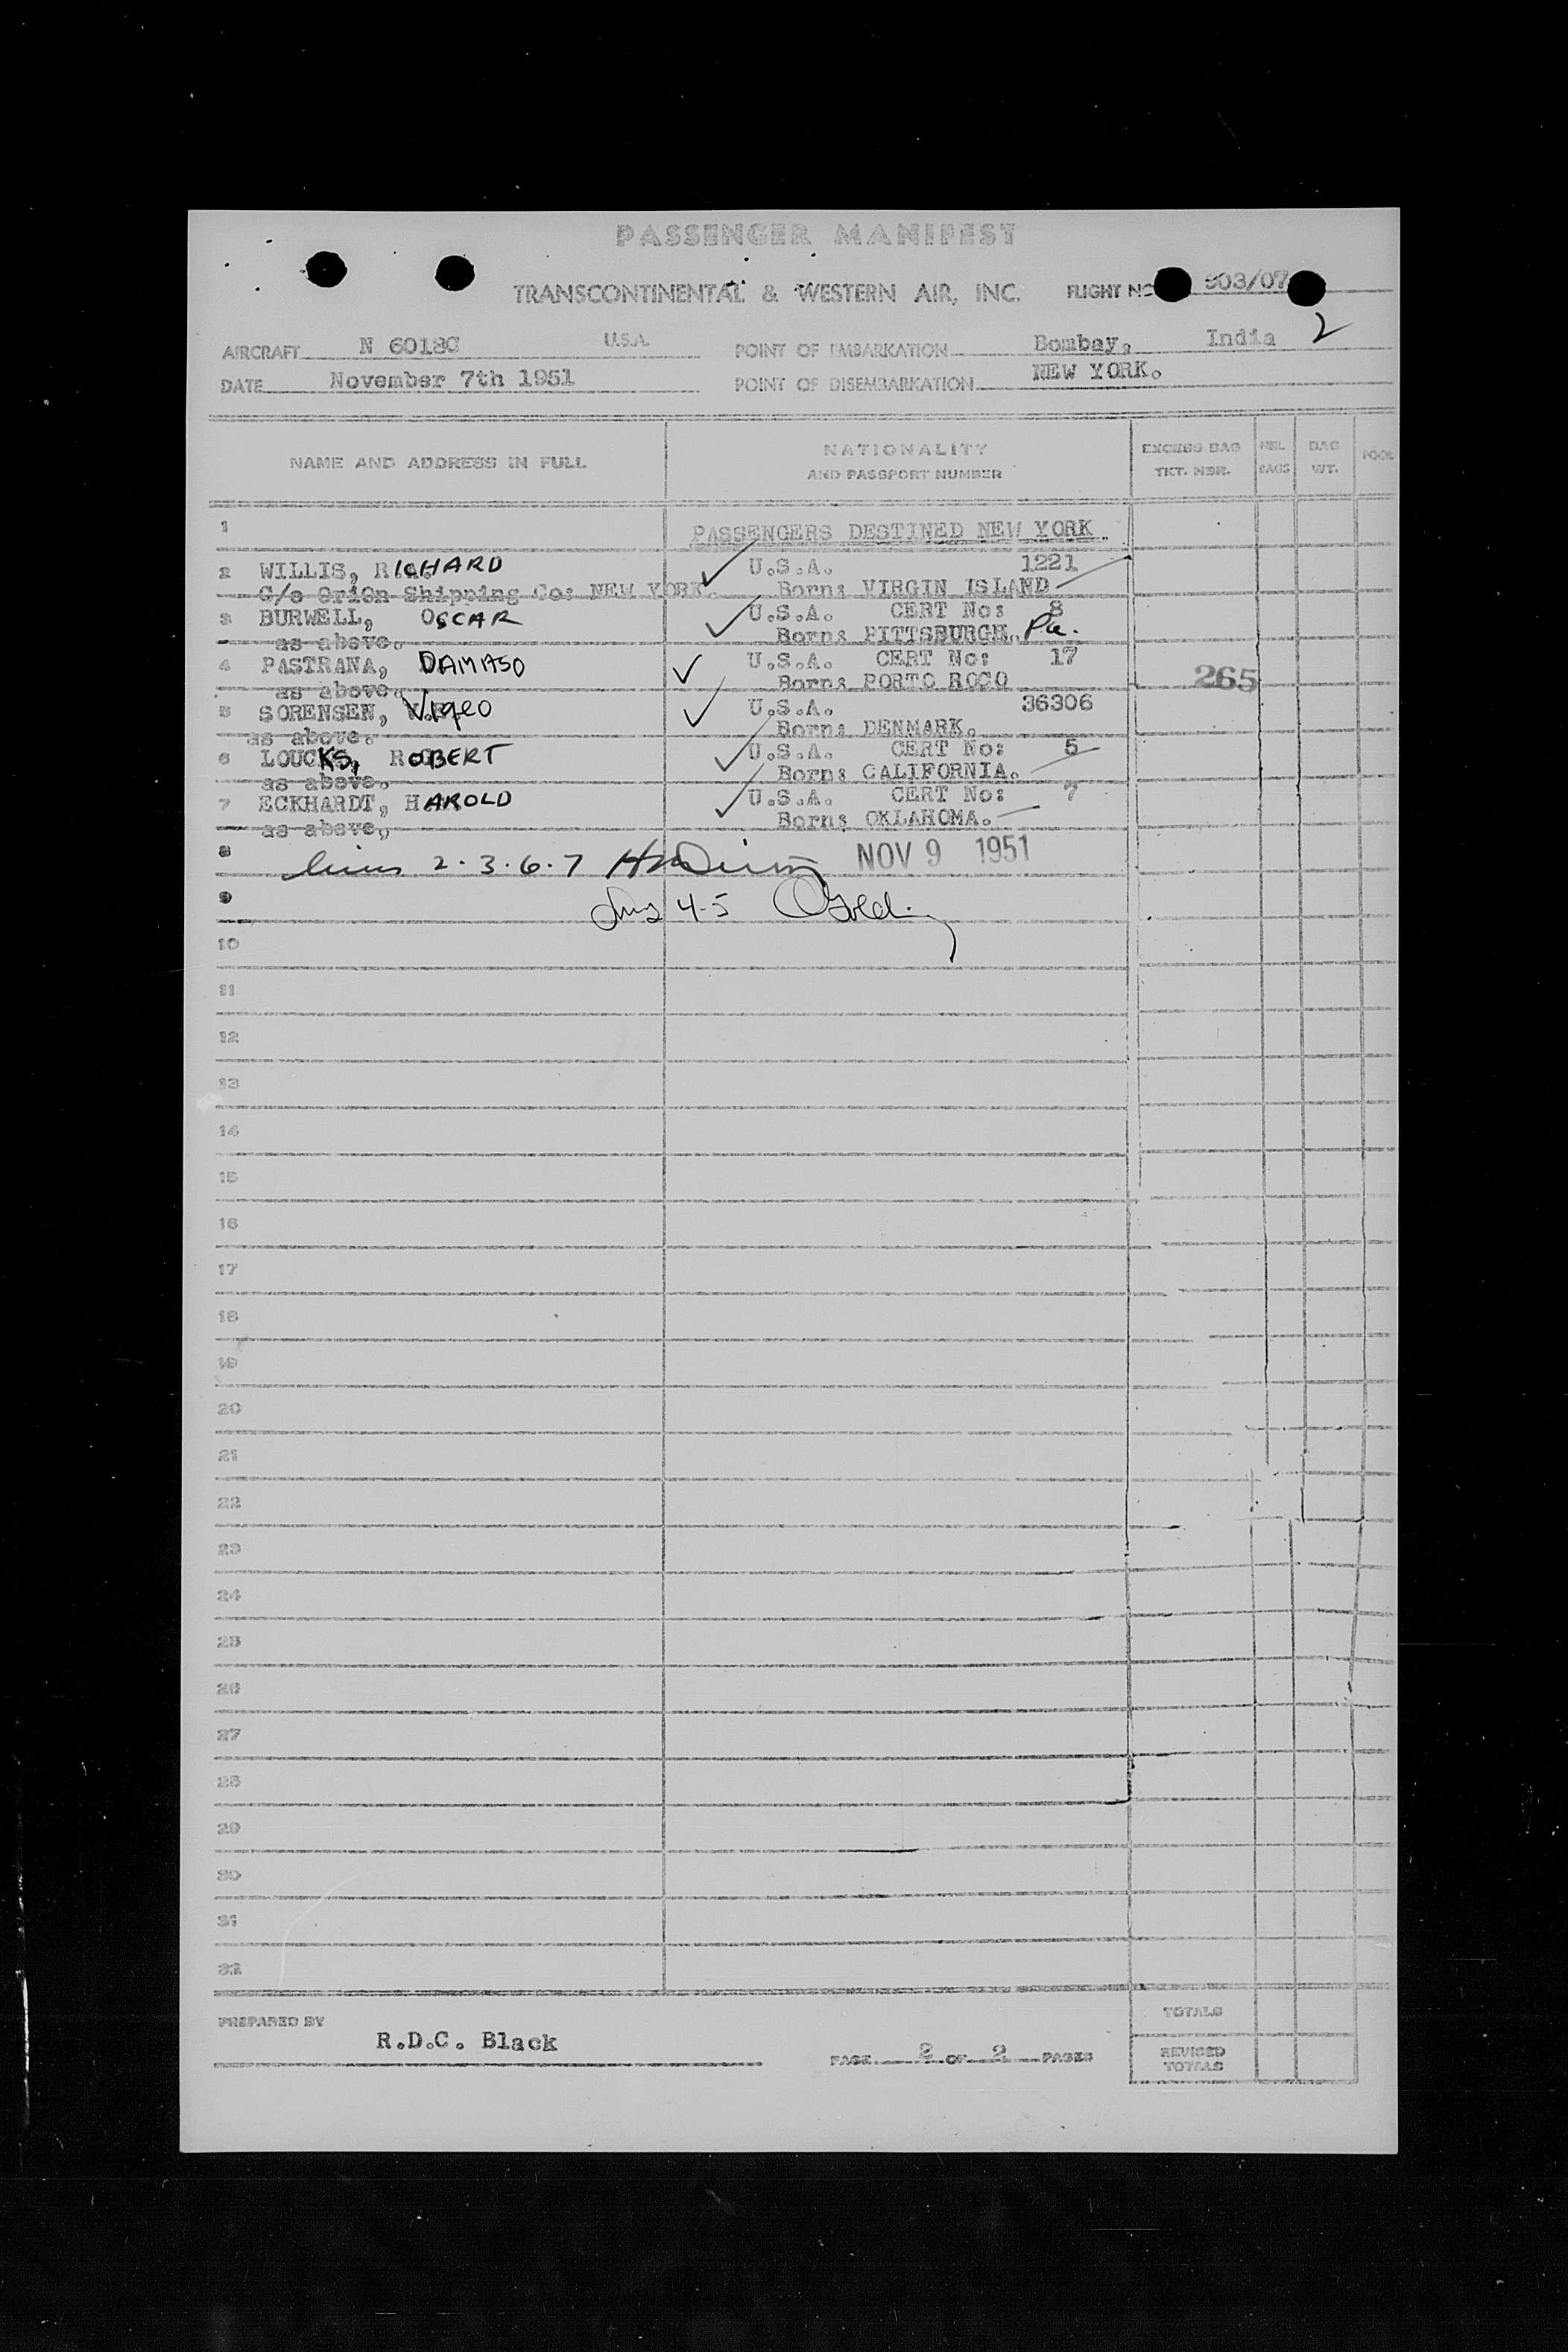 PASSENGER MANIFEST
TRANSCONTINENTAL & WESTERN AIR, INC. FLIGHT NO 903/07
AIRCRAFT N 6018C U.S.A. POINT OF EMBARKATION Bombay, India 2
DATE November 7th 1951 POINT OF DISEMBARKATION NEW YORK.
NAME AND ADDRESS IN FULL NATIONALITY AND PASSPORT NUMBER EXCESS BAG TKT. NBR. BAGS BAG WT.
1 PASSENGERS DESTINED NEW YORK
2 WILLIS, RICHARD U.S.A. 1221
C/o Orion Shipping Co: NEW YORK. Born: VIRGIN ISLAND
3 BURWELL, OSCAR U.S.A. CERT No: 8
as above. Born: PITTSBURGH. Pa.
4 PASTRANA, DAMIASO U.S.A. CERT No: 17
as above. Born: PORTO ROCO 265
5 SORENSEN, VIGEO U.S.A. 36306
as above. Born: DENMARK.
6 LOUCKS, ROBERT U.S.A. CERT No: 5
as above. Born: CALIFORNIA.
7 ECKHARDT, HAROLD U.S.A. CERT No: 7
as above, Born: OKLAHOMA.
8 lines 2.3.6.7 NOV 9 1951
9 4-5
10
11
12
13
14
15
16
17
18
19
20
21
22
23
24
25
26
27
28
29
30
31
32
PREPARED BY R.D.C. Black PAGE 2 OF 2 PAGES
TOTALS
REVISED TOTALS